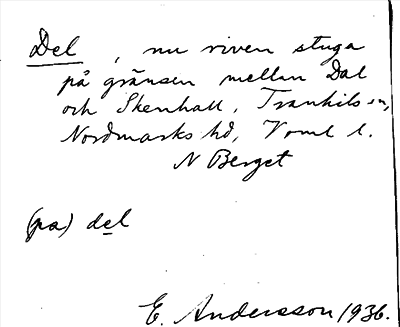 Del, nu riven stuga
på gränsen mellan Dal
och Skenhall, Trankils sn,
Nordmarks hd, Vrml l.
N Berget
(på) del
E. Andersson 1936.